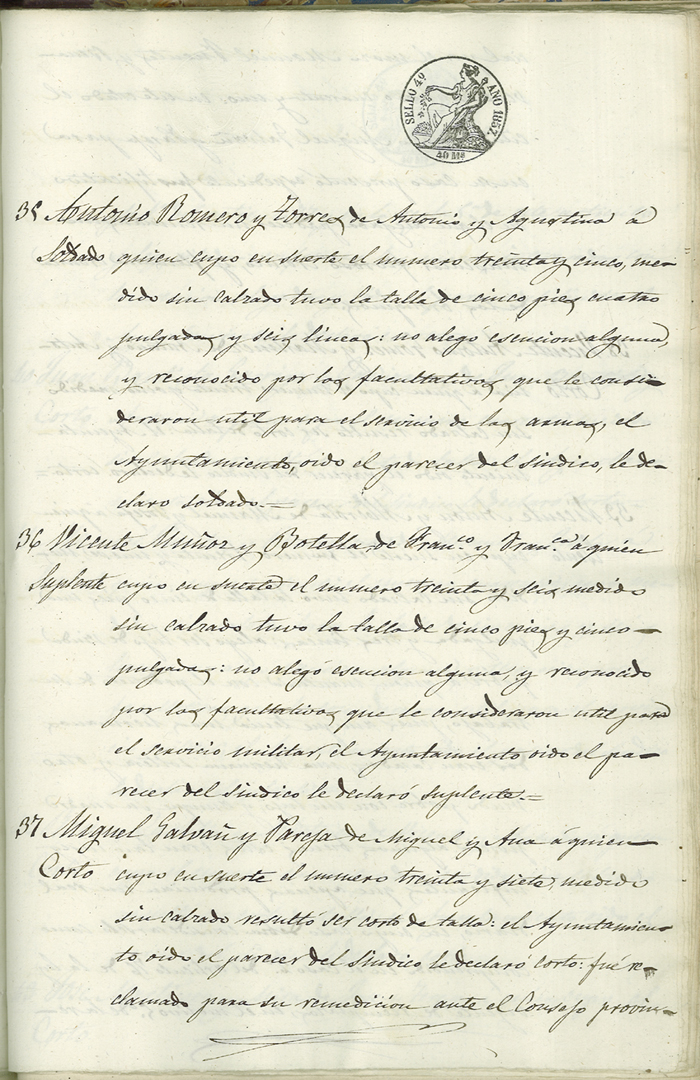 SELLO 4º AÑO 1857.
40 Ms
35 Antonio Romero y Torres, de Antonio y Agustina á
Soldado quien cupo en suerte el numero treinta y cinco, me-
dido sin calzado tuvo la talla de cinco pies cuatro
pulgadas y seis lineas: no alegó esencion alguna,
y reconocido por los facultativos que le consi-
deraron util para el servicio de las armas, el
Ayuntamiento, oido el parecer del sindico, le de-
claro soldado.=
36 Vicente Muñoz y Botella, de Franco y Franca á quien
Suplente cupo en suerte el numero treinta y seis medido
sin calzado tuvo la talla de cinco pies y cinco
pulgadas: no alegó esencion alguna, y reconocido
por los facultativos que le consideraron util para
el servicio militar, el Ayuntamiento oido el pa-
recer del sindico le declaró suplente.=
37 Miguel Galvañ y Pareja de Miguel y Ana á quien
Corto cupo en suerte el numero treinta y siete, medido
sin calzado resultó ser corto de talla: el Ayuntamien-
to oido el parecer del Sindico le declaró corto: fué re-
clamado para su remedicion ante el Consejo provin-